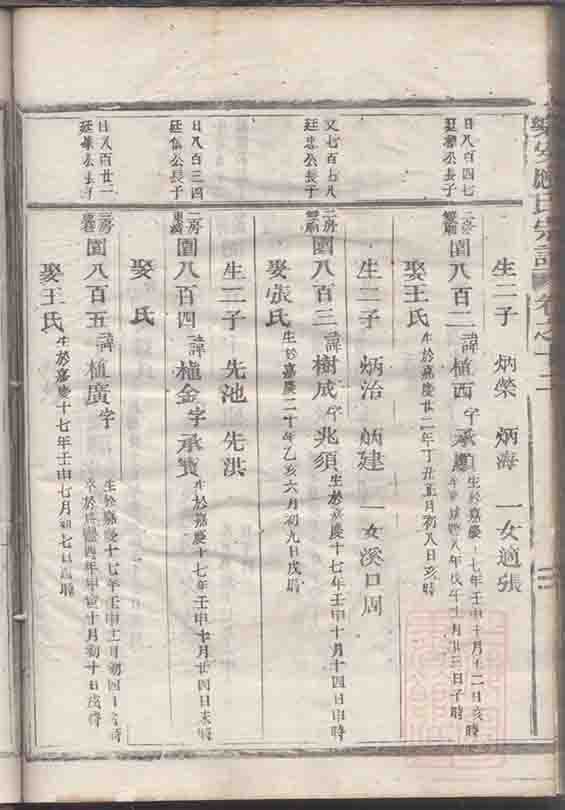 樂安應氏宗譜 卷之十二
生二子 炳榮 炳海 一女適張
日八百四七
公長子
二房
園八百二 諱植西 字承
生於嘉慶十七年壬申十月十二日亥時
八年戊午十月廿三日子時
娶王氏 生於嘉慶廿二年丁丑正月初八日亥時
生二子 炳治 炳建 一女溪口周
又七百七八
廷忠公長子
二房
園八百三 諱樹成 字兆須 生於嘉慶十七年壬申十月十四日申時
娶張氏 生於嘉慶二十年乙亥六月初九日戌時
生二子 先池 先洪
日八百三四
廷 公長子
二房
園八百四 諱植金 字承寶 生於嘉慶十七年壬申十月廿四日未時
娶 氏
日八百廿二
廷 公長子
二房
園八百五 諱植廣 字
生於嘉慶十七年壬申十二月初四日 時
卒於咸豐四年甲寅十月初十日戌時
娶王氏 生於嘉慶十七年壬申七月初七日 時